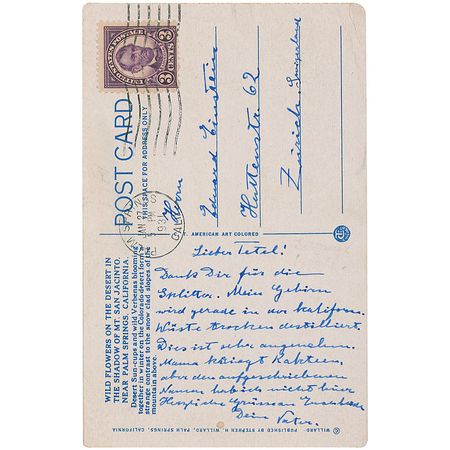 3 CENTS 3
UNITED STATES POSTAGE
POST CARD
THIS SPACE FOR ADDRESS ONLY
PALM SPRINGS
JAN 27
5 PM
1931
CALIF.
Herrn
Eduard Einstein
Huttenstr 62
Zürich Switzerland
AMERICAN ART COLORED
WILD FLOWERS ON THE DESERT IN
THE SHADOW OF MT. SAN JACINTO,
NEAR PALM SPRINGS, CALIFORNIA.
Desert Sun-cups and wild Verbenas blooming
together in winter on the Colorado desert form a
strange contrast to the snow clad slopes of the
mountain above.
Lieber Tetel!
Dank Dir für die
Splitter. Mein Gehirn
wird gerade in der kaliforn.
Wüste trocken destilliert.
Dies ist sehr angenehm.
Mama kriegt Kakteen,
aber den aufgeschriebenen
Namen hab ich nicht hier
Herzliche Grüsse
Dein Vater.
© WILLARD - PUBLISHED BY STEPHEN H. WILLARD, PALM SPRINGS, CALIFORNIA